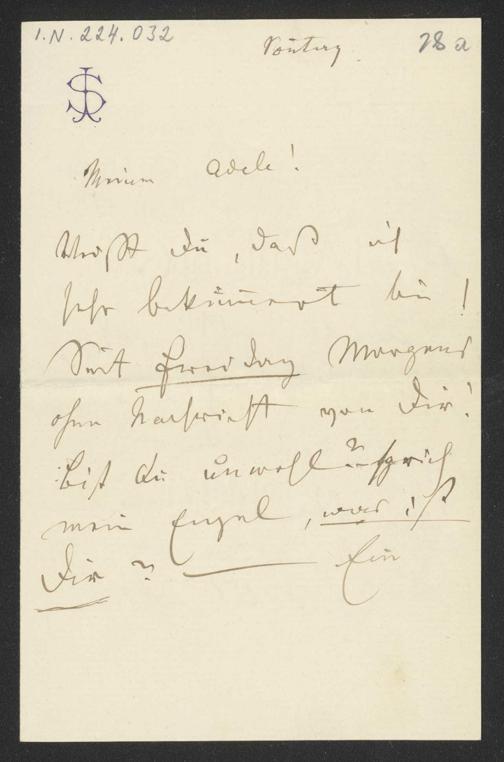 I.N. 224.032
Sontag. 28a
JS
Meine Adele!
Weißt du, daß ich
sehr bekümmert bin!
Seit Freidag Morgens
ohne Nachricht von Dir!
Bist du unwohl? sprich
mein Engel, was ist
Dir? — Ein